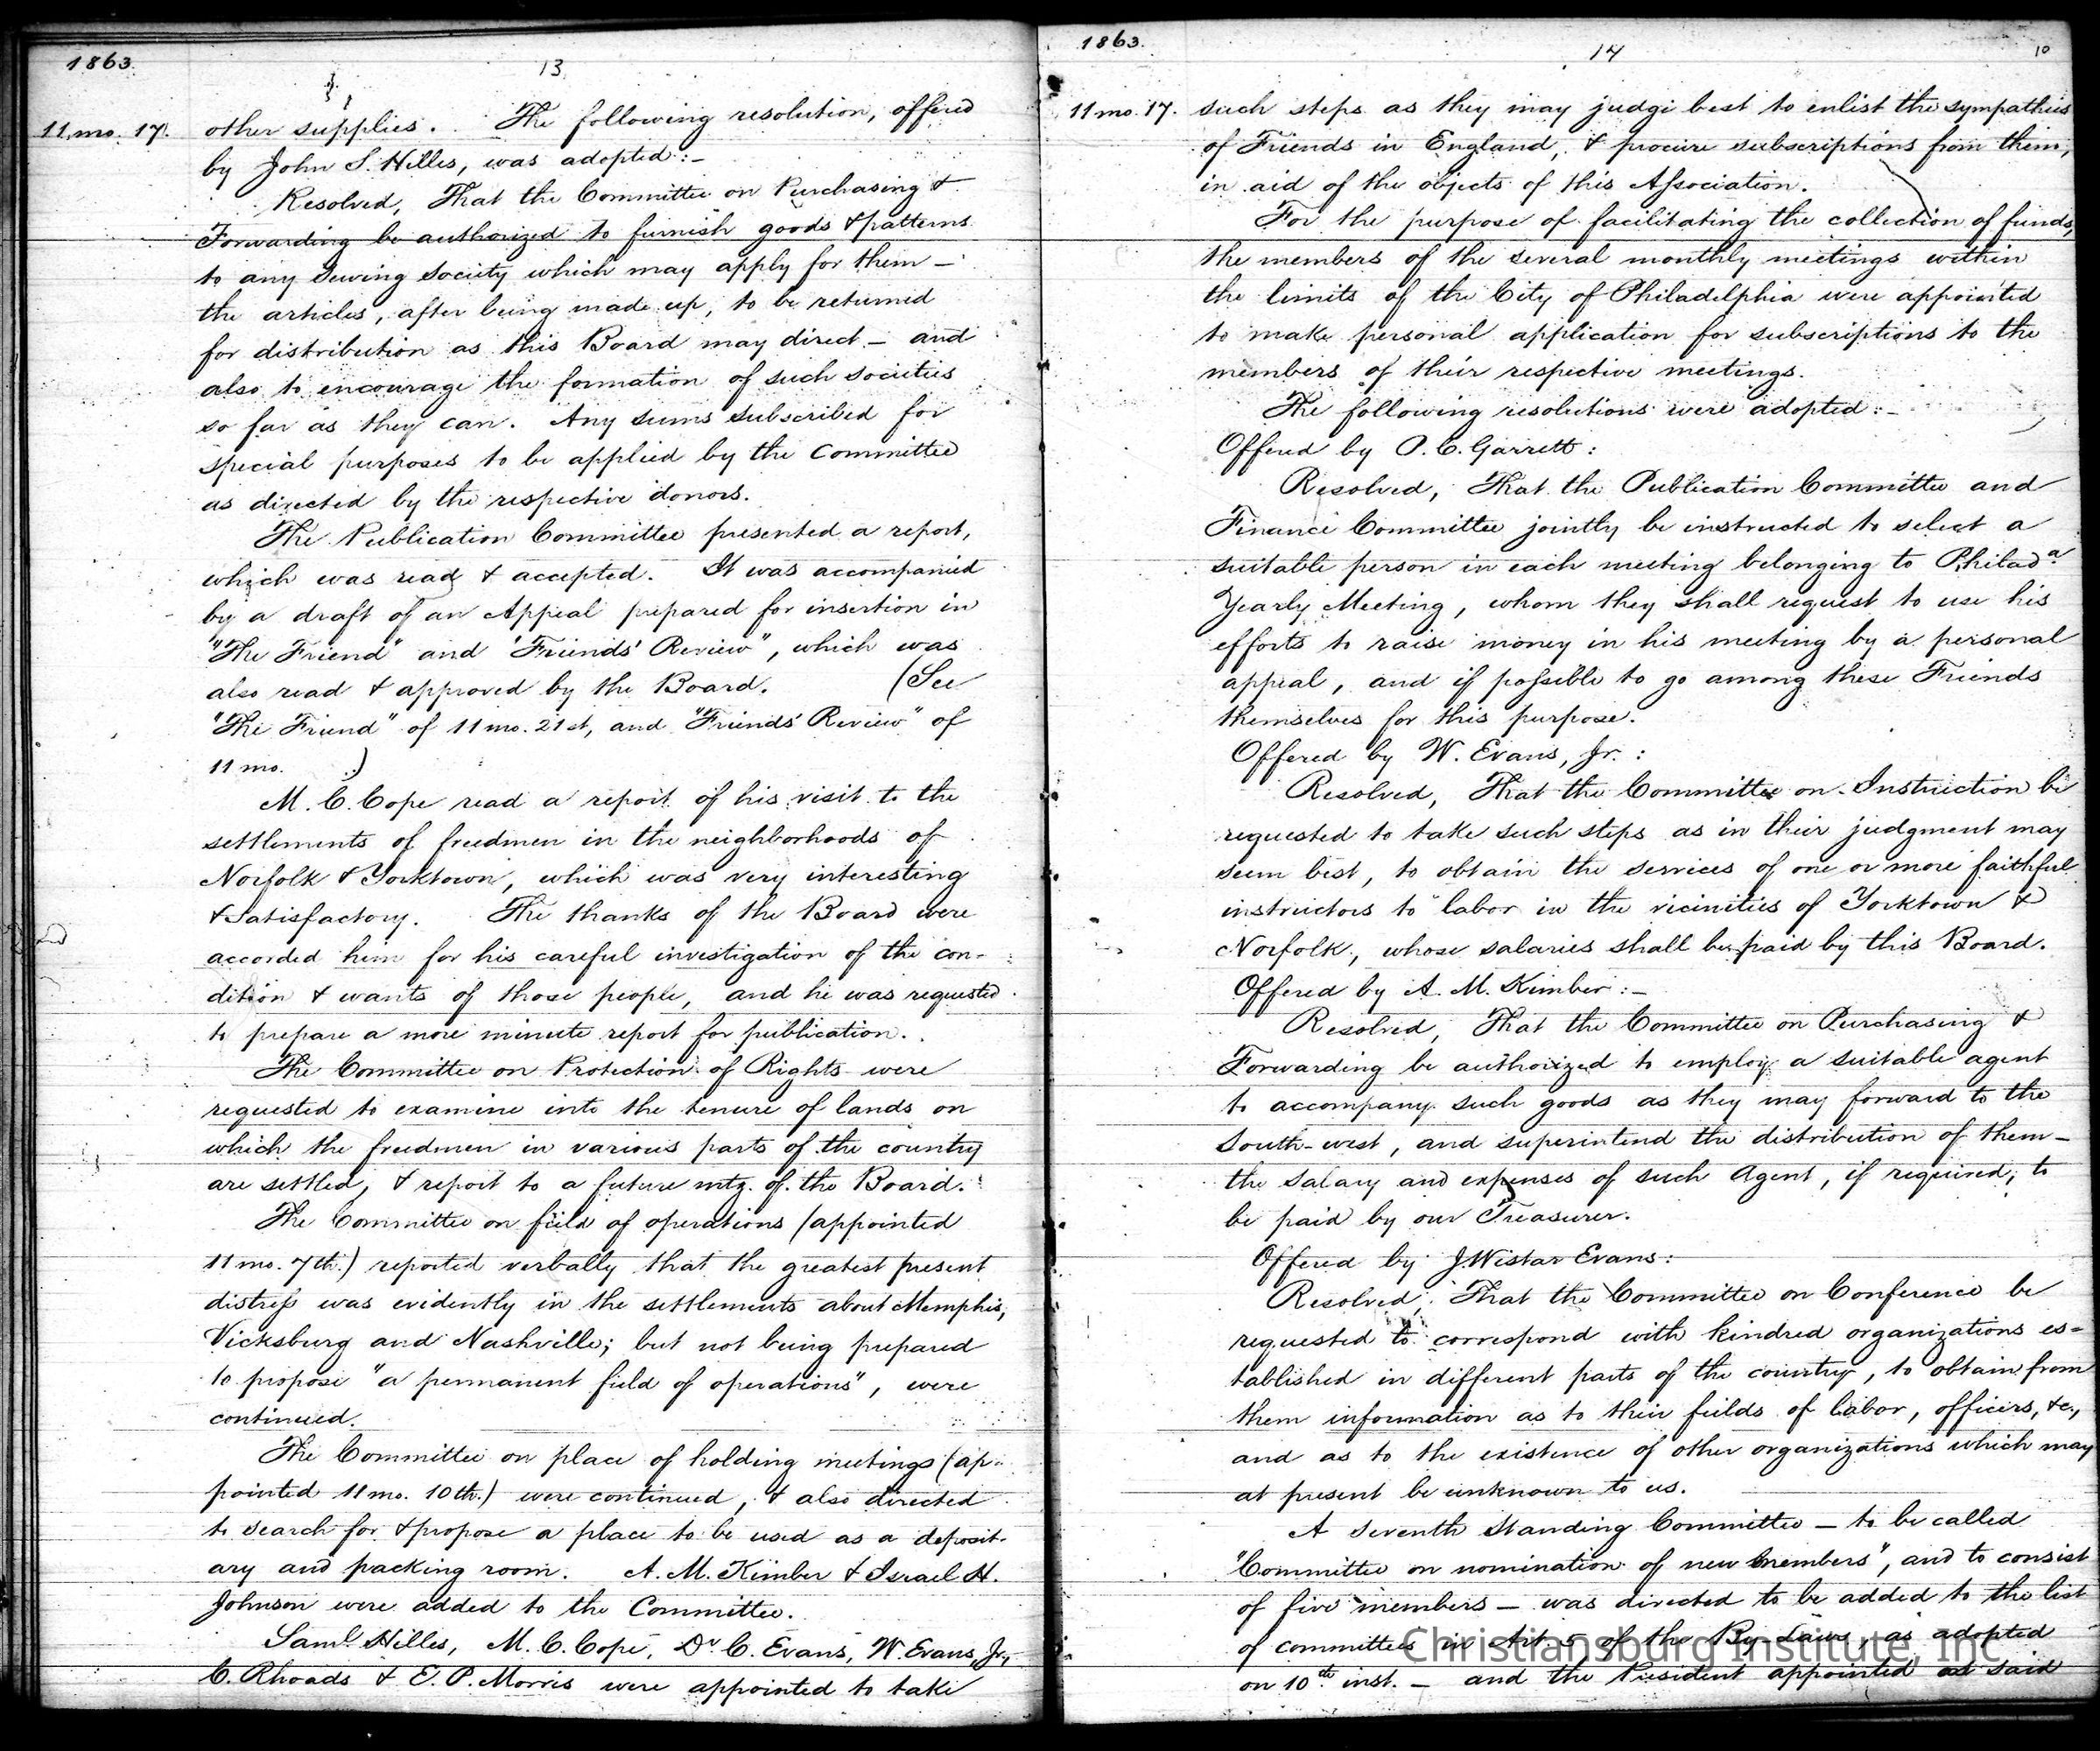 1863.
13
11 mo. 17.
other supplies. The following resolution, offered
by John S. Hilles, was adopted:-
Resolved, That the Committee on Purchasing &
Forwarding be authorized to furnish goods & patterns
to any sewing society which may apply for them —
the articles, after being made up, to be returned
for distribution as this Board may direct — and
also to encourage the formation of such societies
so far as they can. Any sums subscribed for
special purposes to be applied by the Committee
as directed by the respective donors.
The Publication Committee presented a report,
which was read & accepted. It was accompanied
by a draft of an Appeal prepared for insertion in
"The Friend" and "Friends' Review", which was
also read & approved by the Board. (See
"The Friend" of 11 mo. 21st, and "Friends' Review" of
11 mo. .)
M. C. Cope read a report of his visit to the
settlements of freedmen in the neighborhoods of
Norfolk & Yorktown, which was very interesting
& satisfactory. The thanks of the Board were
accorded him for his careful investigation of the con-
dition & wants of those people, and he was requested
to prepare a more minute report for publication.
The Committee on Protection of Rights were
requested to examine into the tenure of lands on
which the freedmen in various parts of the country
are settled, & report to a future mtg. of the Board.
The Committee on field of operations (appointed
11 mo. 7th.) reported verbally that the greatest present
distress was evidently in the settlements about Memphis,
Vicksburg and Nashville; but not being prepared
to propose "a permanent field of operations", were
continued.
The Committee on place of holding meetings (ap-
pointed 11 mo. 10th.) were continued, & also directed
to search for & propose a place to be used as a deposit-
ary and packing room. A. M. Kimber & Israel H.
Johnson were added to the Committee.
Saml. Hilles, M. C. Cope, Dr C. Evans, W. Evans, Jr.,
C. Rhoads & E. P. Morris were appointed to take
1863.
14
10
11 mo. 17.
such steps as they may judge best to enlist the sympathies
of Friends in England, & procure subscriptions from them,
in aid of the objects of this Association.
For the purpose of facilitating the collection of funds,
the members of the several monthly meetings within
the limits of the City of Philadelphia were appointed
to make personal application for subscriptions to the
members of their respective meetings.
The following resolutions were adopted:-
Offered by P. C. Garrett:
Resolved, That the Publication Committee and
Finance Committee jointly be instructed to select a
suitable person in each meeting belonging to Philada.
Yearly Meeting, whom they shall request to use his
efforts to raise money in his meeting by a personal
appeal, and if possible to go among these Friends
themselves for this purpose.
Offered by W. Evans, Jr.:
Resolved, That the Committee on Instruction be
requested to take such steps as in their judgment may
seem best, to obtain the services of one or more faithful
instructors to labor in the vicinities of Yorktown &
Norfolk, whose salaries shall be paid by this Board.
Offered by A. M. Kimber:-
Resolved, That the Committee on Purchasing &
Forwarding be authorized to employ a suitable agent
to accompany such goods as they may forward to the
South-west, and superintend the distribution of them —
the salary and expenses of such Agent, if required, to
be paid by our Treasurer.
Offered by J. Wistar Evans:
Resolved, That the Committee on Conference be
requested to correspond with kindred organizations es-
tablished in different parts of the country, to obtain from
them information as to their fields of labor, officers, &c.,
and as to the existence of other organizations which may
at present be unknown to us.
A seventh Standing Committee — to be called
"Committee on nomination of new members", and to consist
of five members — was directed to be added to the list
of committees in Art. 5 of the By-Laws, as adopted
on 10th inst. — and the President appointed as said
Christiansburg Institute, Inc